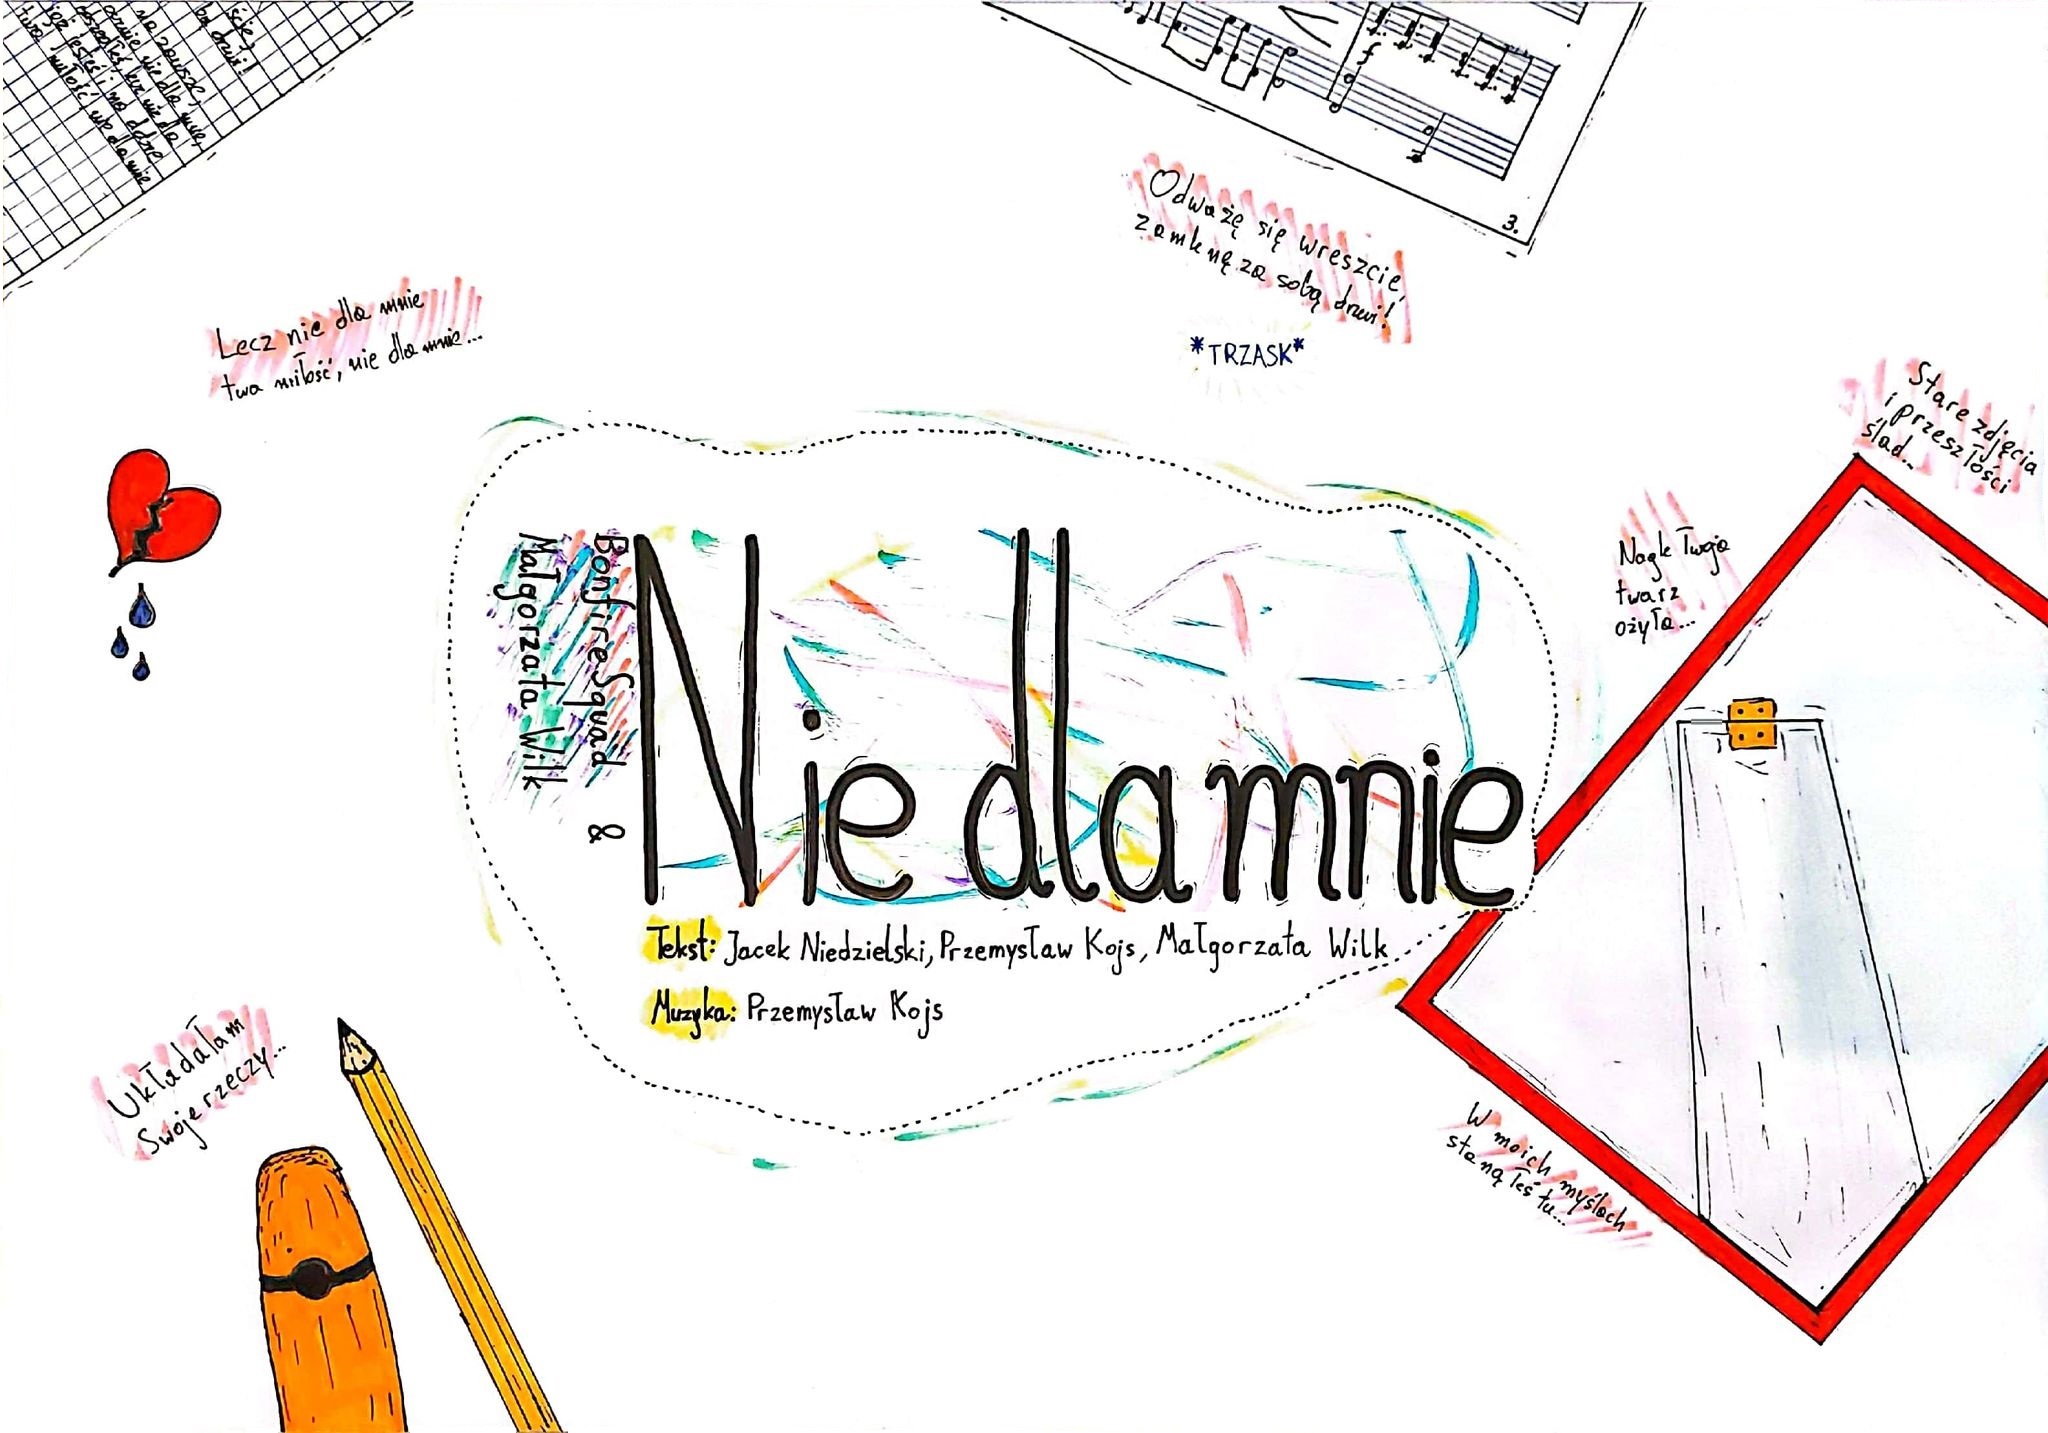 ście,
drzwi!
na zawsze,
nie dla mnie,
twa miłość, nie dla mnie
f
3.
Odważę się wreszcie,
zamknę za sobą drzwi!
*TRZASK*
Lecz nie dla mnie
twa miłość, nie dla mnie...
Stare zdjęcia
i przeszłości
ślad...
Nagle Twoja
twarz
ożyła...
BonfireSquad &
Małgorzata Wilk
Nie dla mnie
Tekst: Jacek Niedzielski, Przemysław Kojs, Małgorzata Wilk
Muzyka: Przemysław Kojs
Układałam
swoje rzeczy...
W moich myślach
stanąłeś tu...